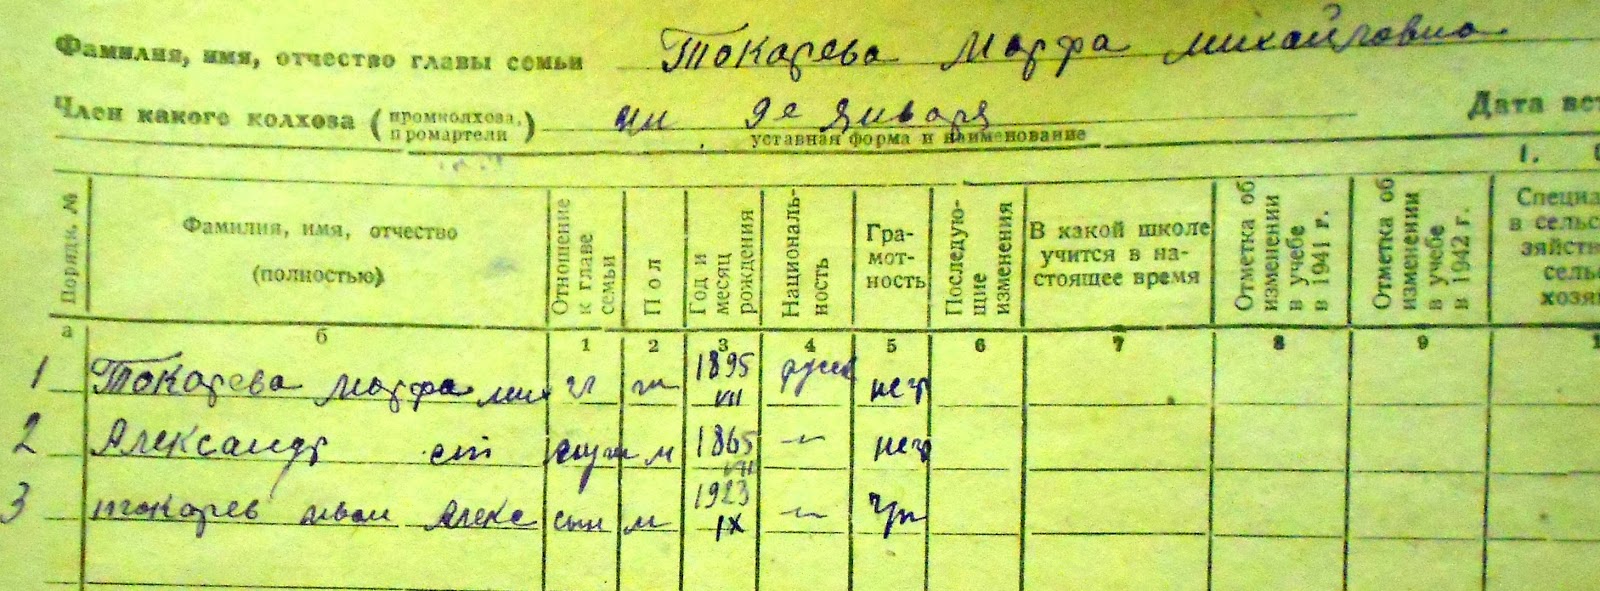 Фамилия, имя, отчество главы семьи Токарева Марфа Михайловна
Член какого колхоза (промколхоза, промартели) им 9е Января Дата вст
уставная форма и наименование
1.
Порядк. №
Фамилия, имя, отчество (полностью)
Отношение к главе семьи
Пол
Год и месяц рождения
Националь-ность
Гра-мот-ность
Последую-щие изменения
В какой школе учится в на-стоящее время
Отметка об изменении в учебе в 1941 г.
Отметка об изменении в учебе в 1942 г.
Специа в сельс зяйств сель хозя
а б 1 2 3 4 5 6 7 8 9 1
1 Токарева Марфа Мих гл ж 1895 VII русск негр
2 Александр ст муж м 1865 VII —"— негр
3 токарев иван Алекс сын м 1923 IX —"— гр